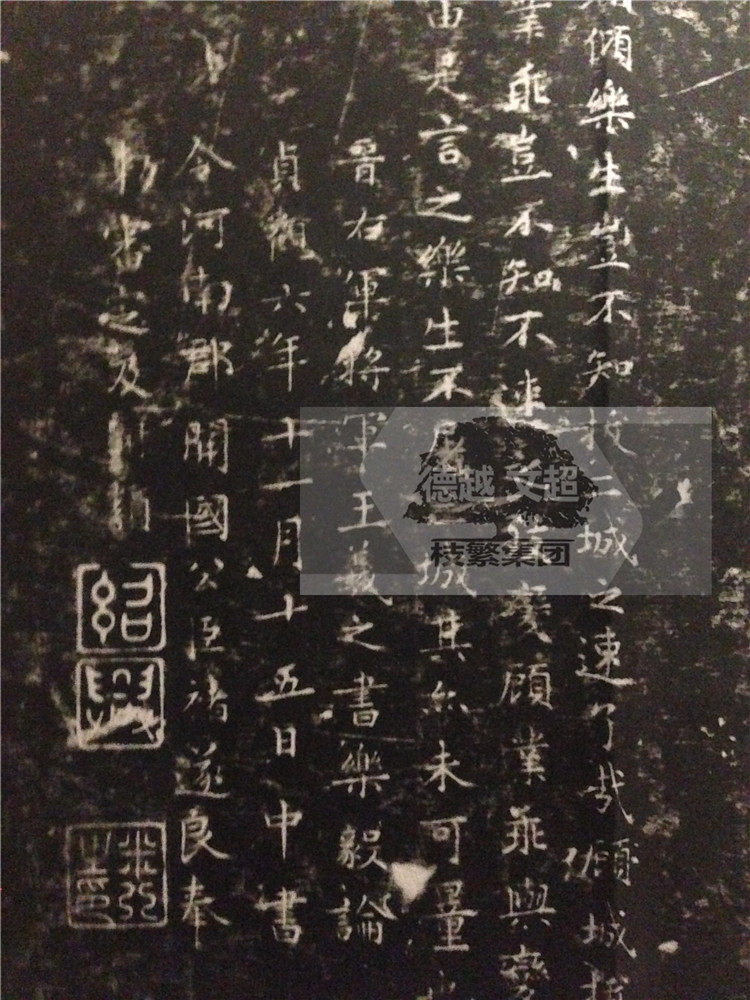 傾樂生豈不知拔二城之速了哉顧城拔
業乖豈不知不速變顧業乖與變
由是言之樂生不屠二城其亦未可量
晉右軍將軍王羲之書樂毅論
貞觀六年十一月十五日中書
令河南郡開國公臣褚遂良奉
勅審定及
紹興
之印
德越 文超
枝繁集团